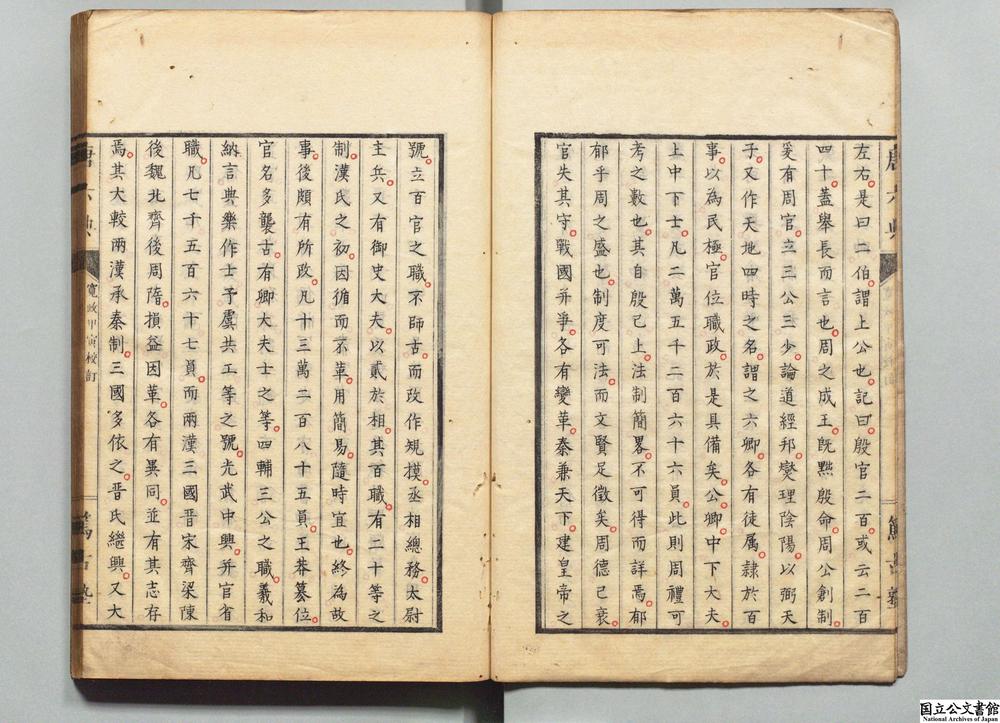 左右是曰二伯謂上公也記曰殷官二百或云二百
四十蓋舉長而言也周之成王旣黜殷命周公創制
爰有周官立三公三少論道經邦爕理陰陽以弼天
子又作天地四時之名謂之六卿各有徒属隷於百
事以為民極官位職政於是具備矣公卿中下大夫
上中下士凡二萬五千二百六十六員此則周禮可
考之數也其自殷已上法制簡畧不可得而詳焉郁
郁乎周之盛也制度可法而文賢足徵矣周德已衰
官失其守戰國并爭各有變革秦兼天下建皇帝之
號立百官之職不師古而改作規摸丞相總務太尉
主兵又有御史大夫以貳於相其百職有二十等之
制漢氏之初因循而不革用簡易隨時宜也終為故
事後頗有所改凡十三萬二百八十五員王莽簒位
官名多襲古有卿大夫士之等四輔三公之職羲和
納言典樂作士予虞共工等之號光武中興并官省
職凡七千五百六十七員而兩漢三國晋宋齊梁陳
後魏北齊後周隋損益因革各有異同並有其志存
焉其大較兩漢承秦制三國多依之晋氏継興又大
唐六典
寛政甲寅校訂
國立公文書館
National Archives of Japan